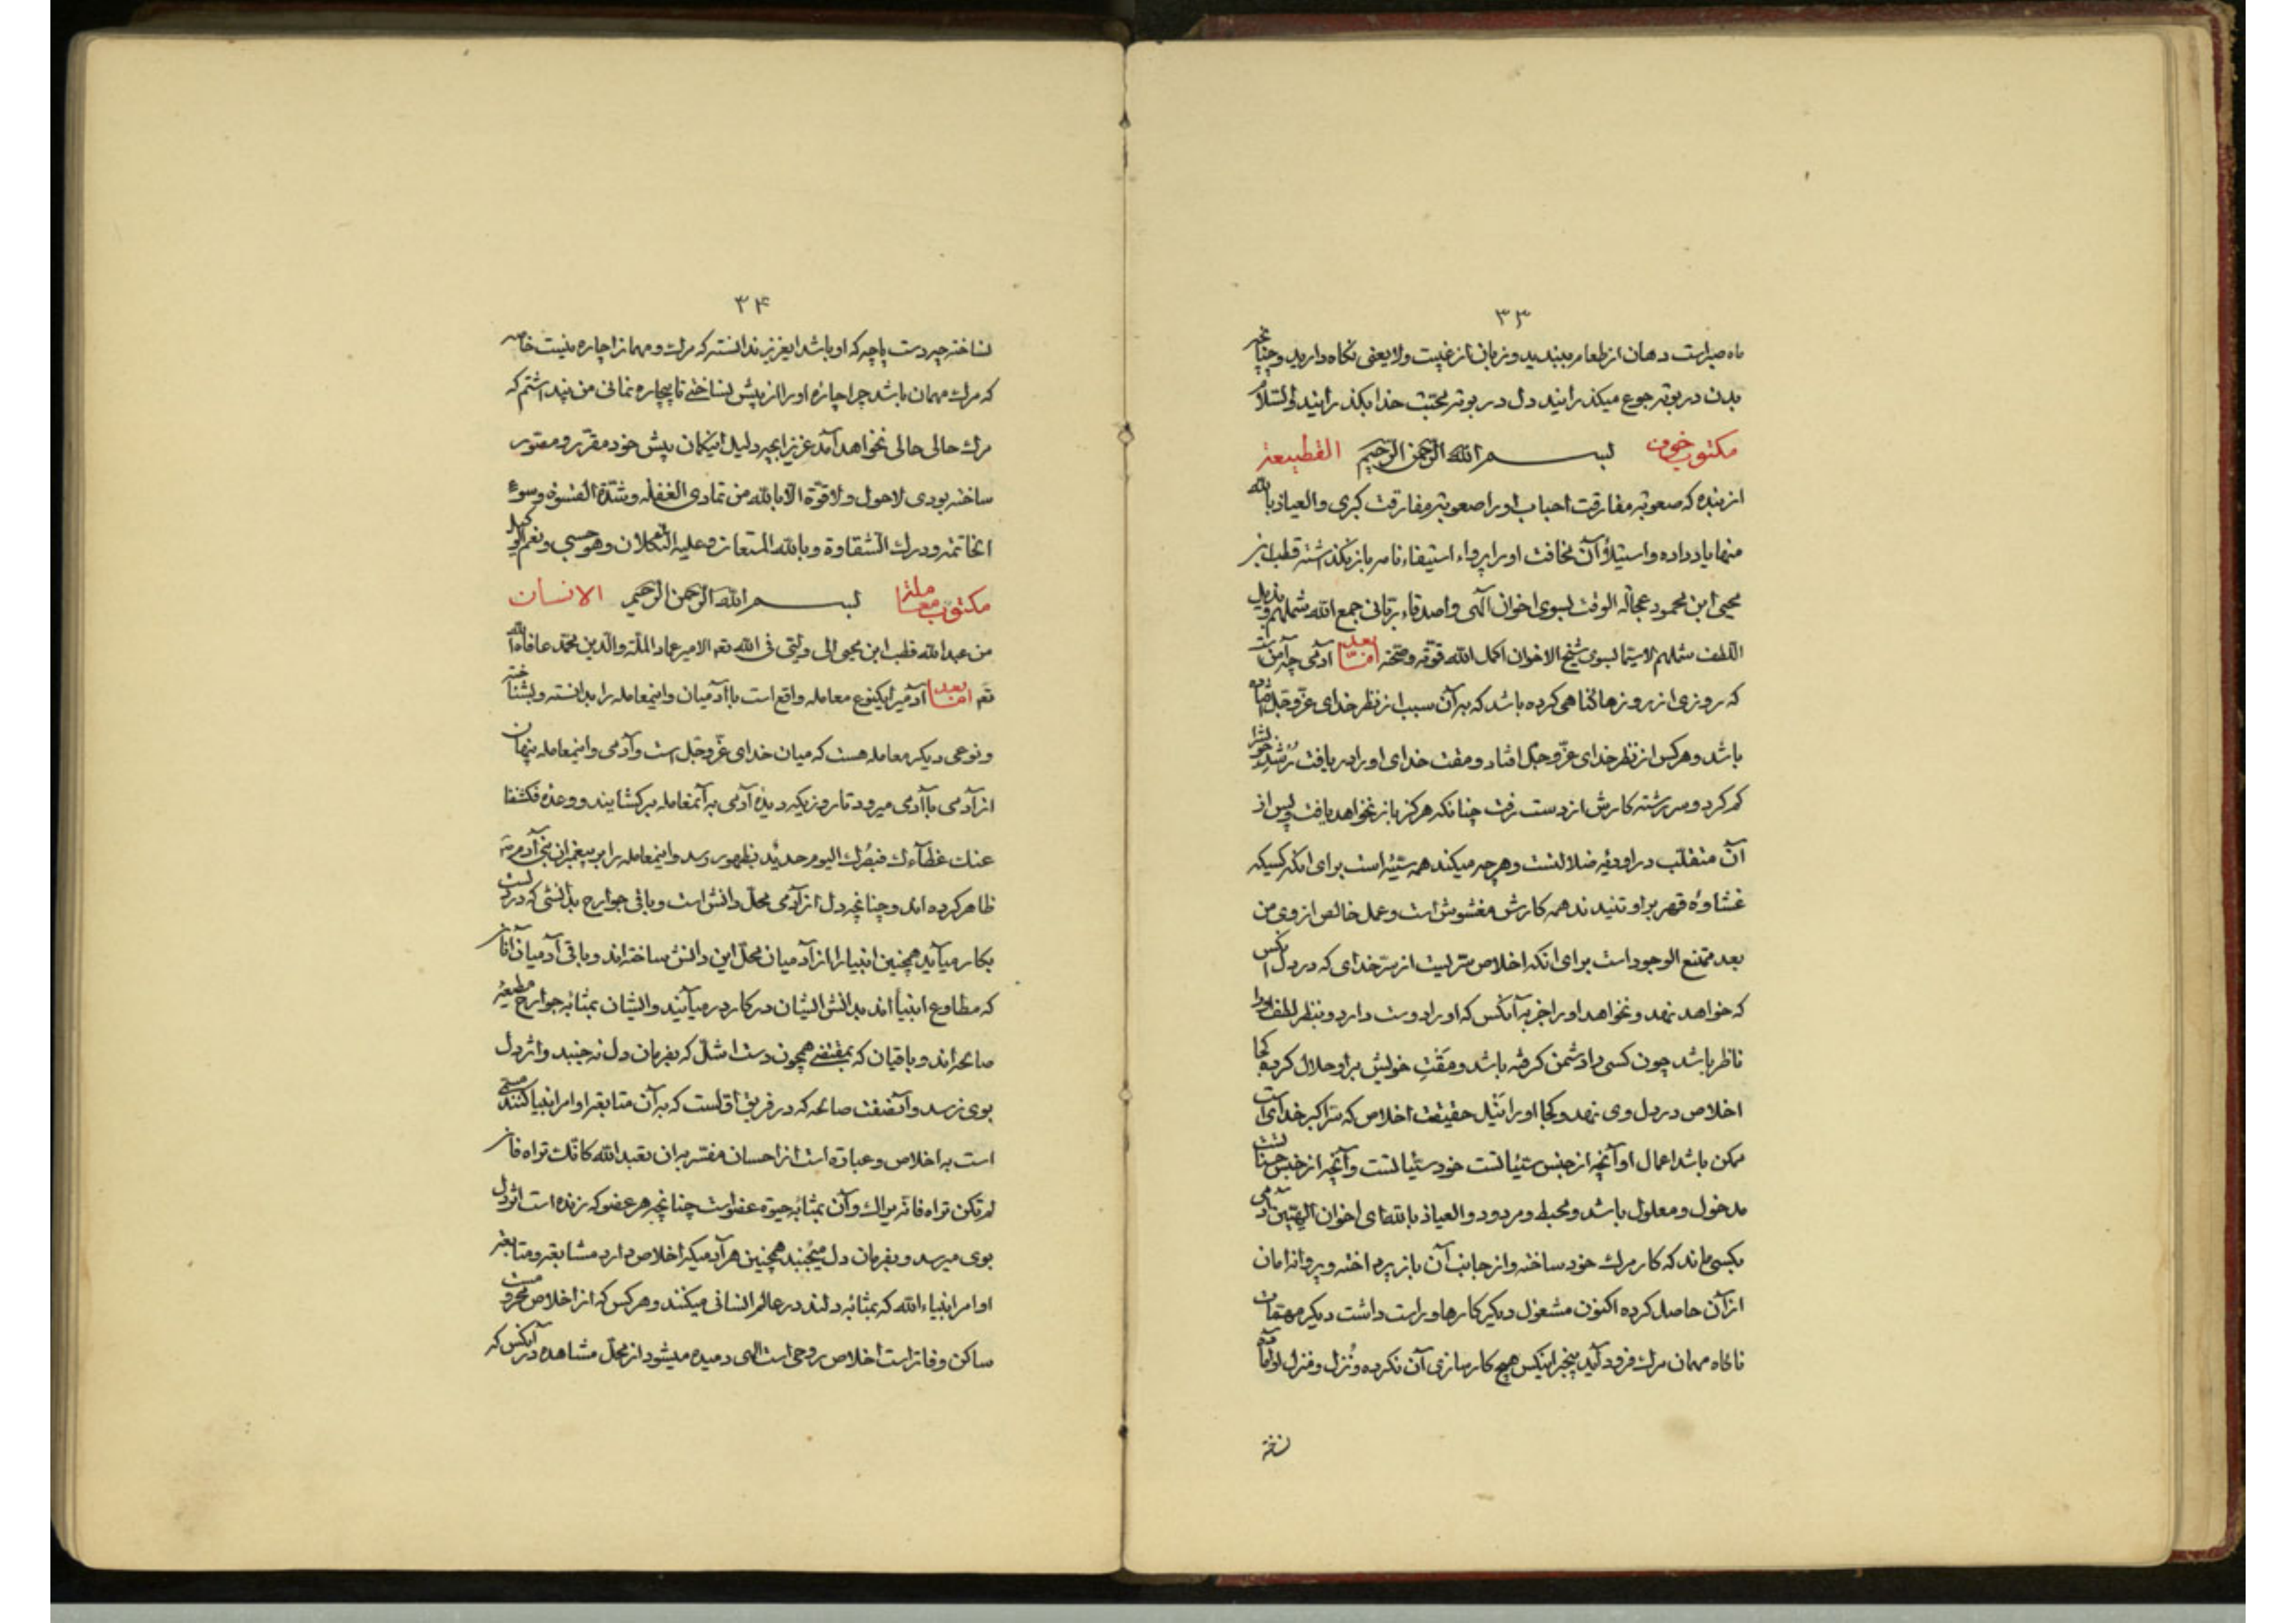 ۳۳
ماه صبر است دهان از طعام ببندید و زبان از غیبت و لا یعنی نگاه دارید و چنانچه
بدن در بوته جوع میگذرانید دل در بوته محبت خدا بگذرانید والسلام
مکتوب خوف بسم الله الرحمن الرحیم القطیعة
از بنده که صعوبة مفارقت احباب او را صعوبة مفارقت کبری والعیاذ بالله
منها یاد داده و استیلاء آن مخافت او را پرواء استیفاء نامه باز نگذاشته قطب بن
محیی ابن محمود عجالة الوقت بسوی اخوان الهی و اصدقاء ربانی جمع الله شملهم و بذیل
اللطف شملهم لاسیما بسوی شیخ الاخوان اکمل الله قوته و صحته اما بعد آدمی چه آمن است
که روزی از روزها گناهی کرده باشد که به آن سبب از نظر خدای عز و جل افتاده
باشد و هر کس از نظر خدای عز و جل افتاد و مقت خدای او را دریافت رشد خویش را
گم کرد و سر رشته کارش از دست رفت چنانکه هرگز باز نخواهد یافت و پس از
آن منقلب در اودیه ضلالتست و هر چه میکند همه سیئه است برای انکه کسیکه
غشاوه قهر بر او تنیدند همه کارش مغشوش است و عمل خالص از وی من
بعد ممتنع الوجود است برای انکه اخلاص سریست از سر خدای که در دل انکس
که خواهد نهد و نخواهد او را جز به آنکس که او را دوست دارد و بنظر لطف او را
ناظر باشد چون کسی را دشمن گرفته باشد و مقت خویش بر او حلال کرده کجا
اخلاص در دل وی نهد و کجا او را نیل حقیقت اخلاص که سر اکبر خدای است
ممکن باشد اعمال او آنچه از جنس سیئات است خود سیئات است و آنچه از جنس حسنات است
مدخول و معلول باشد و محبط و مردود والعیاذ بالله ای اخوان الهیین آدمی
بکسی ماند که کار مرگ خود ساخته و از جانب آن باز پرداخته و پروانه امان
از آن حاصل کرده اکنون مشغول دیگر کارها و راست داشت دیگر مهمات
ناگاه مهمان مرگ فرود آید بیخبر اینکس هیچ کارسازی آن نکرده و نزل و منزل او آماده
نساخته
۳۴
نساخته چه دست پاچه که او باشد ایعزیز ندانسته که مرگ و مهمان را چاره نیست خاصه
که مرگ مهمان باشد چرا چاره او را از پیش نساختی تا بیچاره نمانی من پنداشتم که
مرگ حالی حالی نخواهد آمد عزیزا بچه دلیل اینگمان پیش خود مقرر و مصور
ساخته بودی لاحول و لا قوة الا بالله من تمادی الغفلة و شدة القسوة و سوء
الخاتمة و درک الشقاوة و بالله المستعان و علیه التکلان و هو حسبی و نعم الوکیل
مکتوب معاملة بسم الله الرحمن الرحیم الانسان
من عبد الله قطب ابن محیی الی ولیی فی الله تعه الامیر عماد الملة والدین محمد عافاه الله
تعه اما بعد آدمی را یکنوع معامله واقع است با آدمیان و اینمعامله را بدانسته و بشناخته
و نوعی دیگر معامله هست که میان خدای عز و جل است و آدمی و اینمعامله پنهان
از آدمی با آدمی میرود تا روزیکه دیده آدمی به آنمعامله برگشایند و وعده فکشفنا
عنک غطاءک فبصرک الیوم حدید بظهور رسد و اینمعامله را بر پیغمبران بنی آدم
ظاهر کرده اند و چنانچه دل از آدمی محل دانش است و باقی جوارح بدانشی که در دلست
بکار میآید همچنین انبیا را از آدمیان محل این دانش ساخته اند و باقی آدمیان آنان
که مطاوع انبیا اند بدانش ایشان در کار در میآیند و ایشان بمثابه جوارح مطیعه
صالحه اند و باقیان که همچون دست اشل که بفرمان دل نه جنبد و اثر دل
بوی نرسد و آنصفت صالحه که در فریق اولست که به آن متابعه اوامر انبیا کنند مسمی
است به اخلاص و عبارة است از احسان مفسر به ان تعبد الله کانک تراه فان
لم تکن تراه فانه یراک و آن بمثابه حیوة عضو است چنانچه هر عضو که زنده است اثر دل
بوی میرسد و بفرمان دل میجنبد همچنین هر آدمیکه اخلاص دارد مشابعه و متابعة
اوامر انبیاء الله که بمثابه دلند در عالم انسانی میکنند و هر کس که از اخلاص محروم است
ساکن و فاتر است اخلاص روحی است الهی دمیده میشود از محل مشاهده در آنکس که